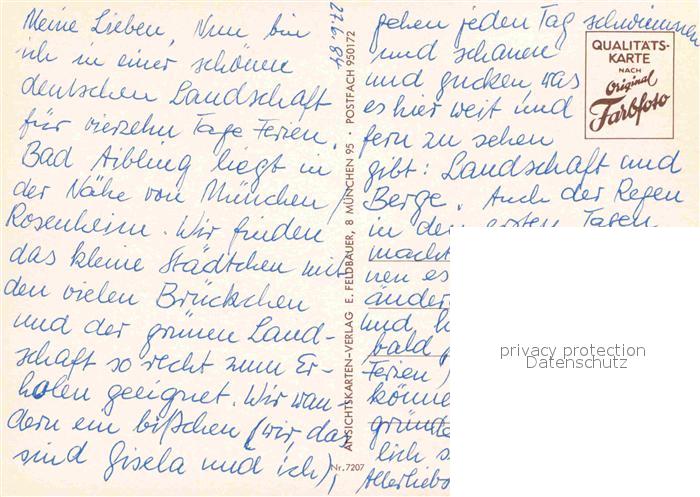 Meine Lieben, Nun bin
ich in einer schönen
deutschen Landschaft
für vierzehn Tage Ferien.
Bad Aibling liegt in
der Nähe von München/
Rosenheim. Wir finden
das kleine Städtchen mit
den vielen Brückchen
und der grünen Land-
schaft so recht zum Er-
holen geeignet. Wir wan-
dern ein bißchen (wir, das
sind Gisela und ich),
ANSICHTSKARTEN-VERLAG E. FELDBAUER, 8 MÜNCHEN 95 · POSTFACH 950172
Nr. 7207
gehen jeden Tag schwimmen
und schauen
und gucken, was
es hier weit und
fern zu sehen
gibt: Landschaft und
Berge. Auch der Regen
in den ersten Tagen
macht
nen es
änder
und
bald
Ferien)
könne
gründe
lich s
Allerliebs
QUALITÄTS-
KARTE
NACH
Original
Farbfoto
privacy protection
Datenschutz